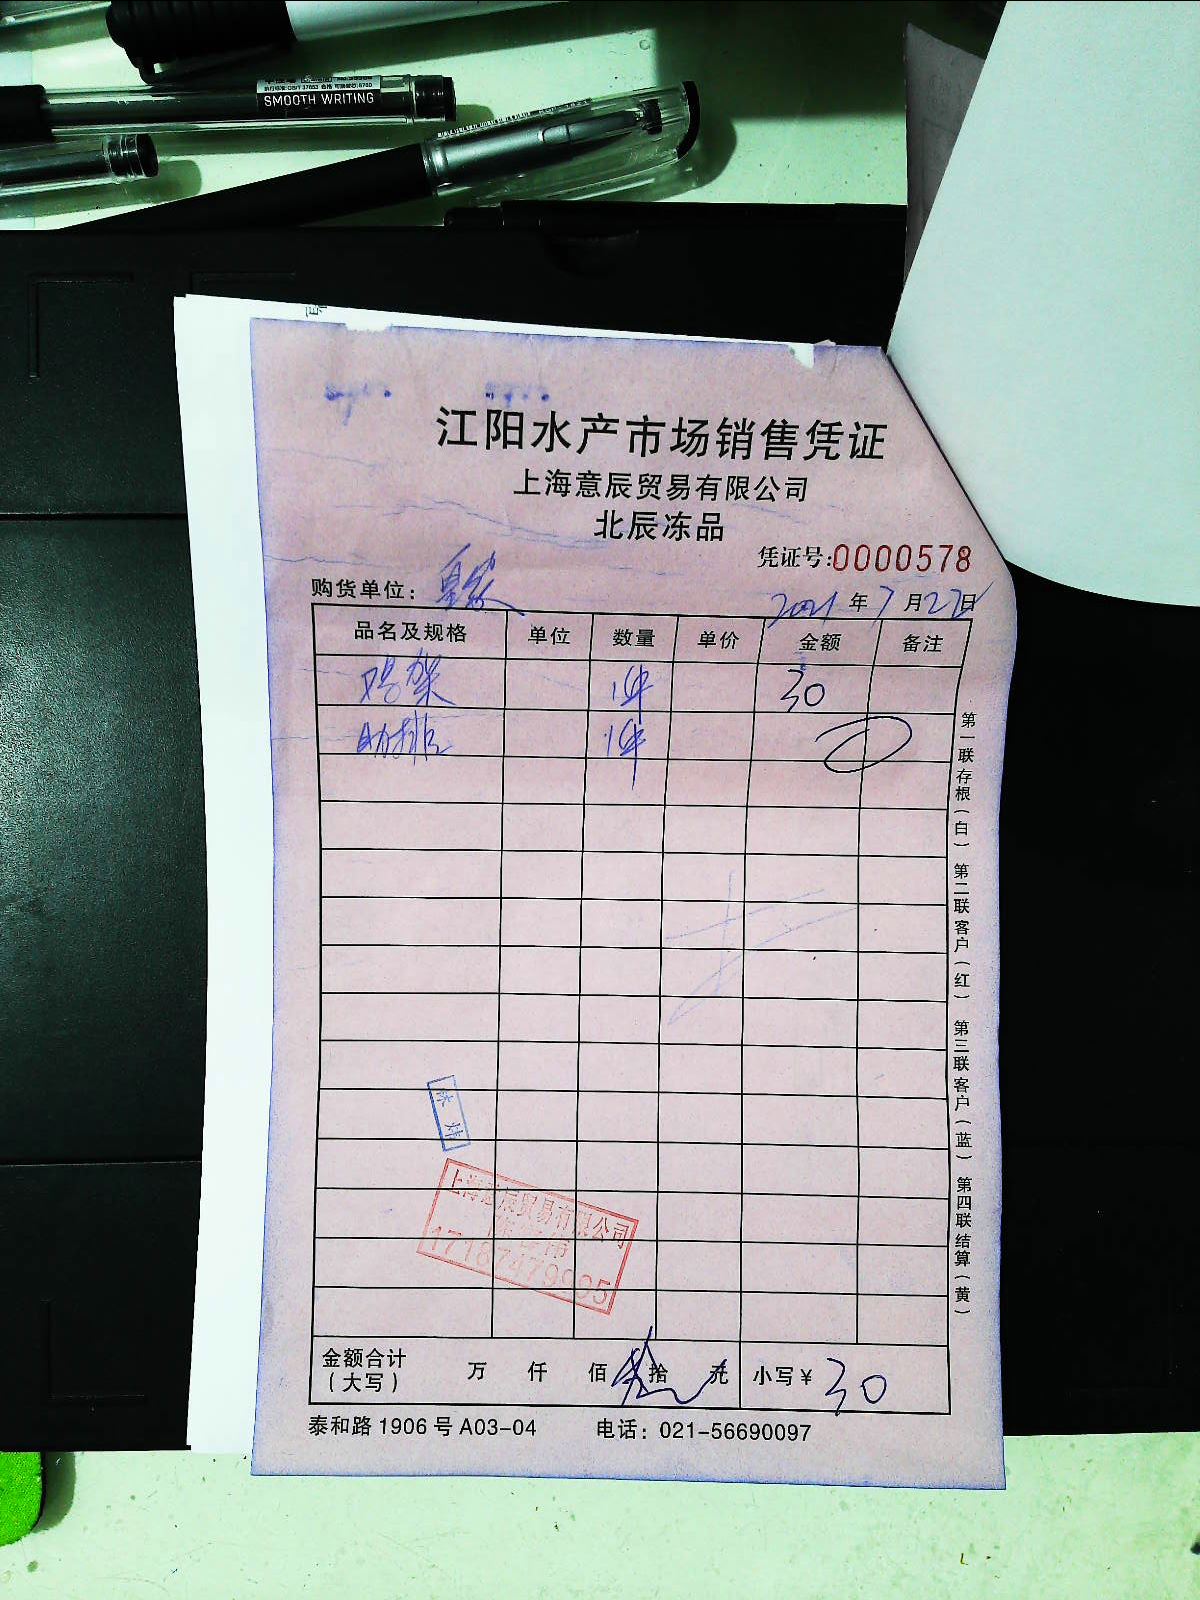 SMOOTH WRITING
江阳水产市场销售凭证
上海意辰贸易有限公司
北辰冻品
凭证号:0000578
购货单位:
2021年7月27日
品名及规格 单位 数量 单价 金额 备注
鸡架 1件 30
肋排 1件
第一联存根(白) 第二联客户(红) 第三联客户(蓝) 第四联结算(黄)
上海意辰贸易有限公司
17187479995
金额合计(大写) 万 仟 佰 叁拾 元 小写¥ 30
泰和路1906号A03-04 电话: 021-56690097